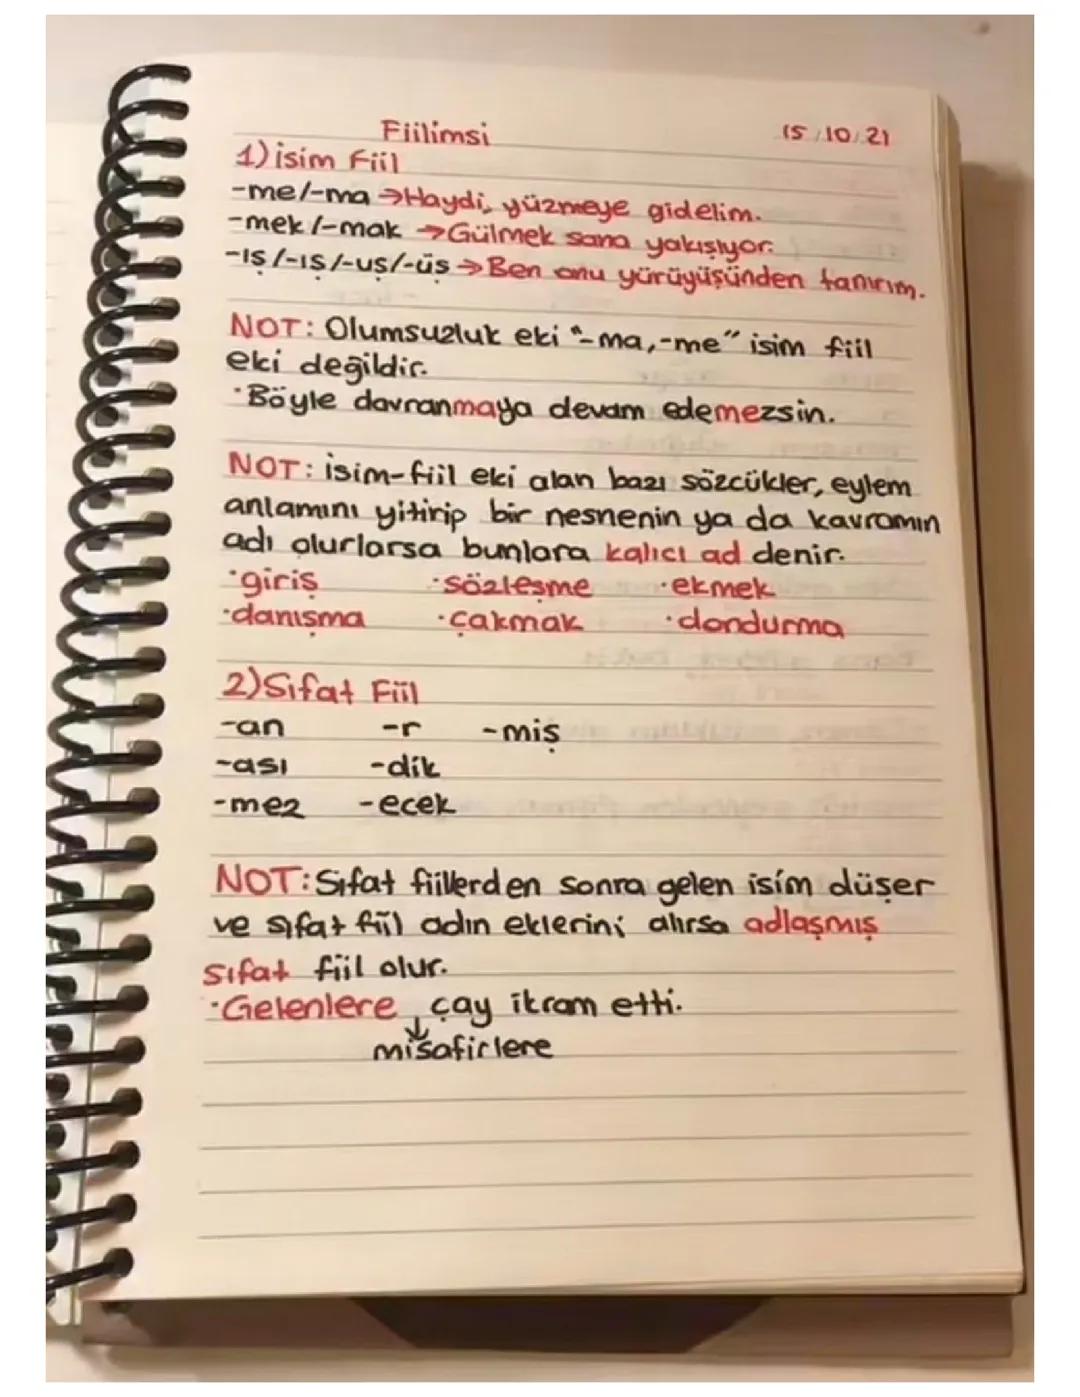 Fiilimsi 15.10.21
1) isim Fiil
-me/-ma →Haydi, yüzmeye gidelim.
-mek/-mak →Gülmek sana yakışıyor.
-ış/-iş/-uş/-üş →Ben onu yürüyüşünden tanırım.
NOT: Olumsuzluk eki "-ma,-me" isim fiil
eki değildir.
·Böyle davranmaya devam edemezsin.
NOT: isim-fiil eki alan bazı sözcükler, eylem
anlamını yitirip bir nesnenin ya da kavramın
adı olurlarsa bunlara kalıcı ad denir.
·giriş ·sözleşme ·ekmek
·danışma ·çakmak ·dondurma
2)Sıfat Fiil
-an -r -miş
-ası -dik
-mez -ecek
NOT: Sıfat fiillerden sonra gelen isim düşer
ve sıfat fiil adın eklerini alırsa adlaşmış
sıfat fiil olur.
·Gelenlere çay ikram etti.
↓
misafirlere